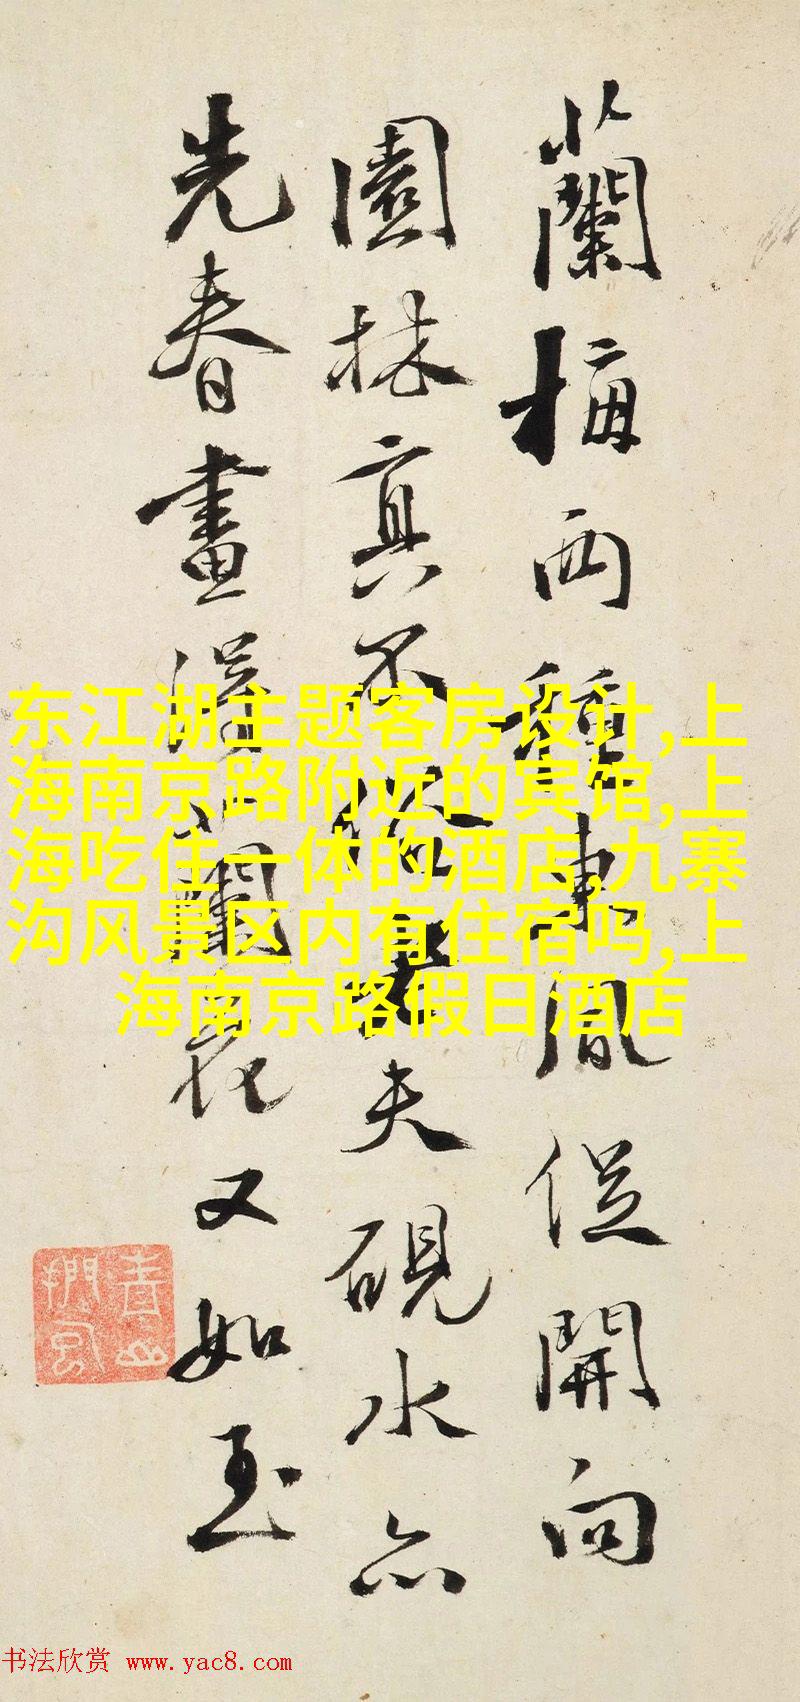 蘭梅两種東風促開向
園林真不俗老夫硯水亦
先春畫得蘭花又如玉
东江湖主题客房设计,上
海南京路附近的宾馆,上
海吃住一体的酒店,九寨
沟风景区内有住宿吗,上
海南京路假日酒店
书法欣赏 www.yac8.com